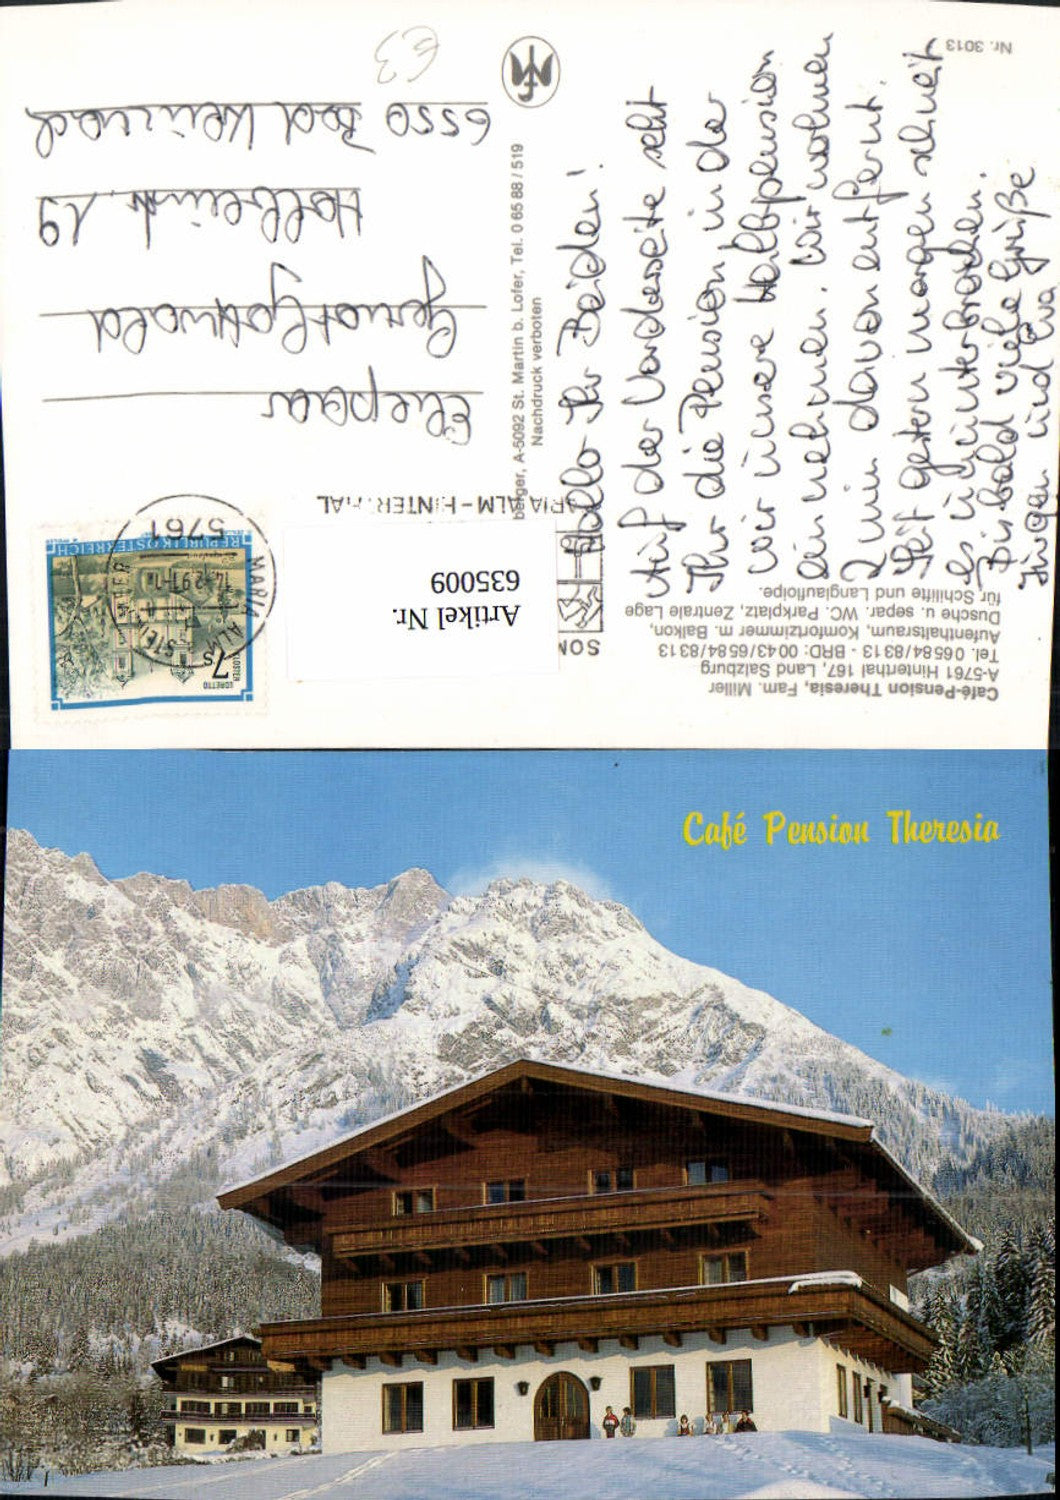 Café-Pension Theresia, Fam. Miller
A-5761 Hinterthal 167, Land Salzburg
Tel. 06584/8313 - BRD: 0043/6584/8313
Aufenthaltsraum, Komfortzimmer m. Balkon,
Dusche u. separ. WC. Parkplatz, Zentrale Lage
für Schilifte und Langlaufloipe.
Hallo Ihr Beiden!
Auf der Vorderseite seht
Ihr die Pension in der
wir unsere Halbpension
einnehmen. Wir wohnen
2 min davon entfernt.
Seit gestern morgen schneit
es ununterbrochen.
Bis bald viele Grüße
Jürgen und Eva
Nr. 3013
berger, A-5092 St. Martin b. Lofer, Tel. 0 65 88 / 519
Nachdruck verboten
SON
ARIA ALM - HINTERTHAL
Artikel Nr.
635009
7s
LORETTO
KLOSTER
REPUBLIK ÖSTERREICH
MARIA ALM
5761
Ehepaar
Gernot Gottwald
Holbeinstr. 19
6550 Bad Kreuznach
€3
Café Pension Theresia